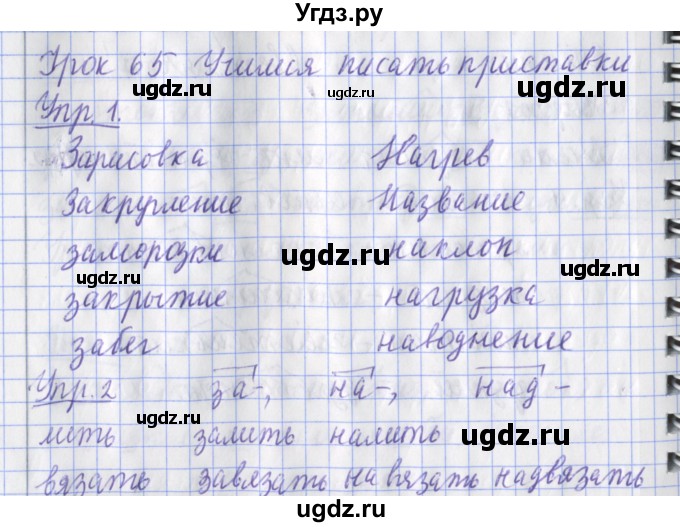 Угдз.ру
Урок 65 Учимся писать приставки
ugdz.ru ugdz.ru ugdz.ru
Упр. 1.
Зарисовка Нагрев
Закругление Название
ugdz.ru
заморозки наклон
ugdz.ru ugdz.ru
закрытие нагрузка
забег наводнение
ugdz.ru
Упр. 2 за-, на-, над-
ugdz.ru ugdz.ru ugdz.ru
лить залить налить
вязать завязать навязать надвязать
Угдз.ру